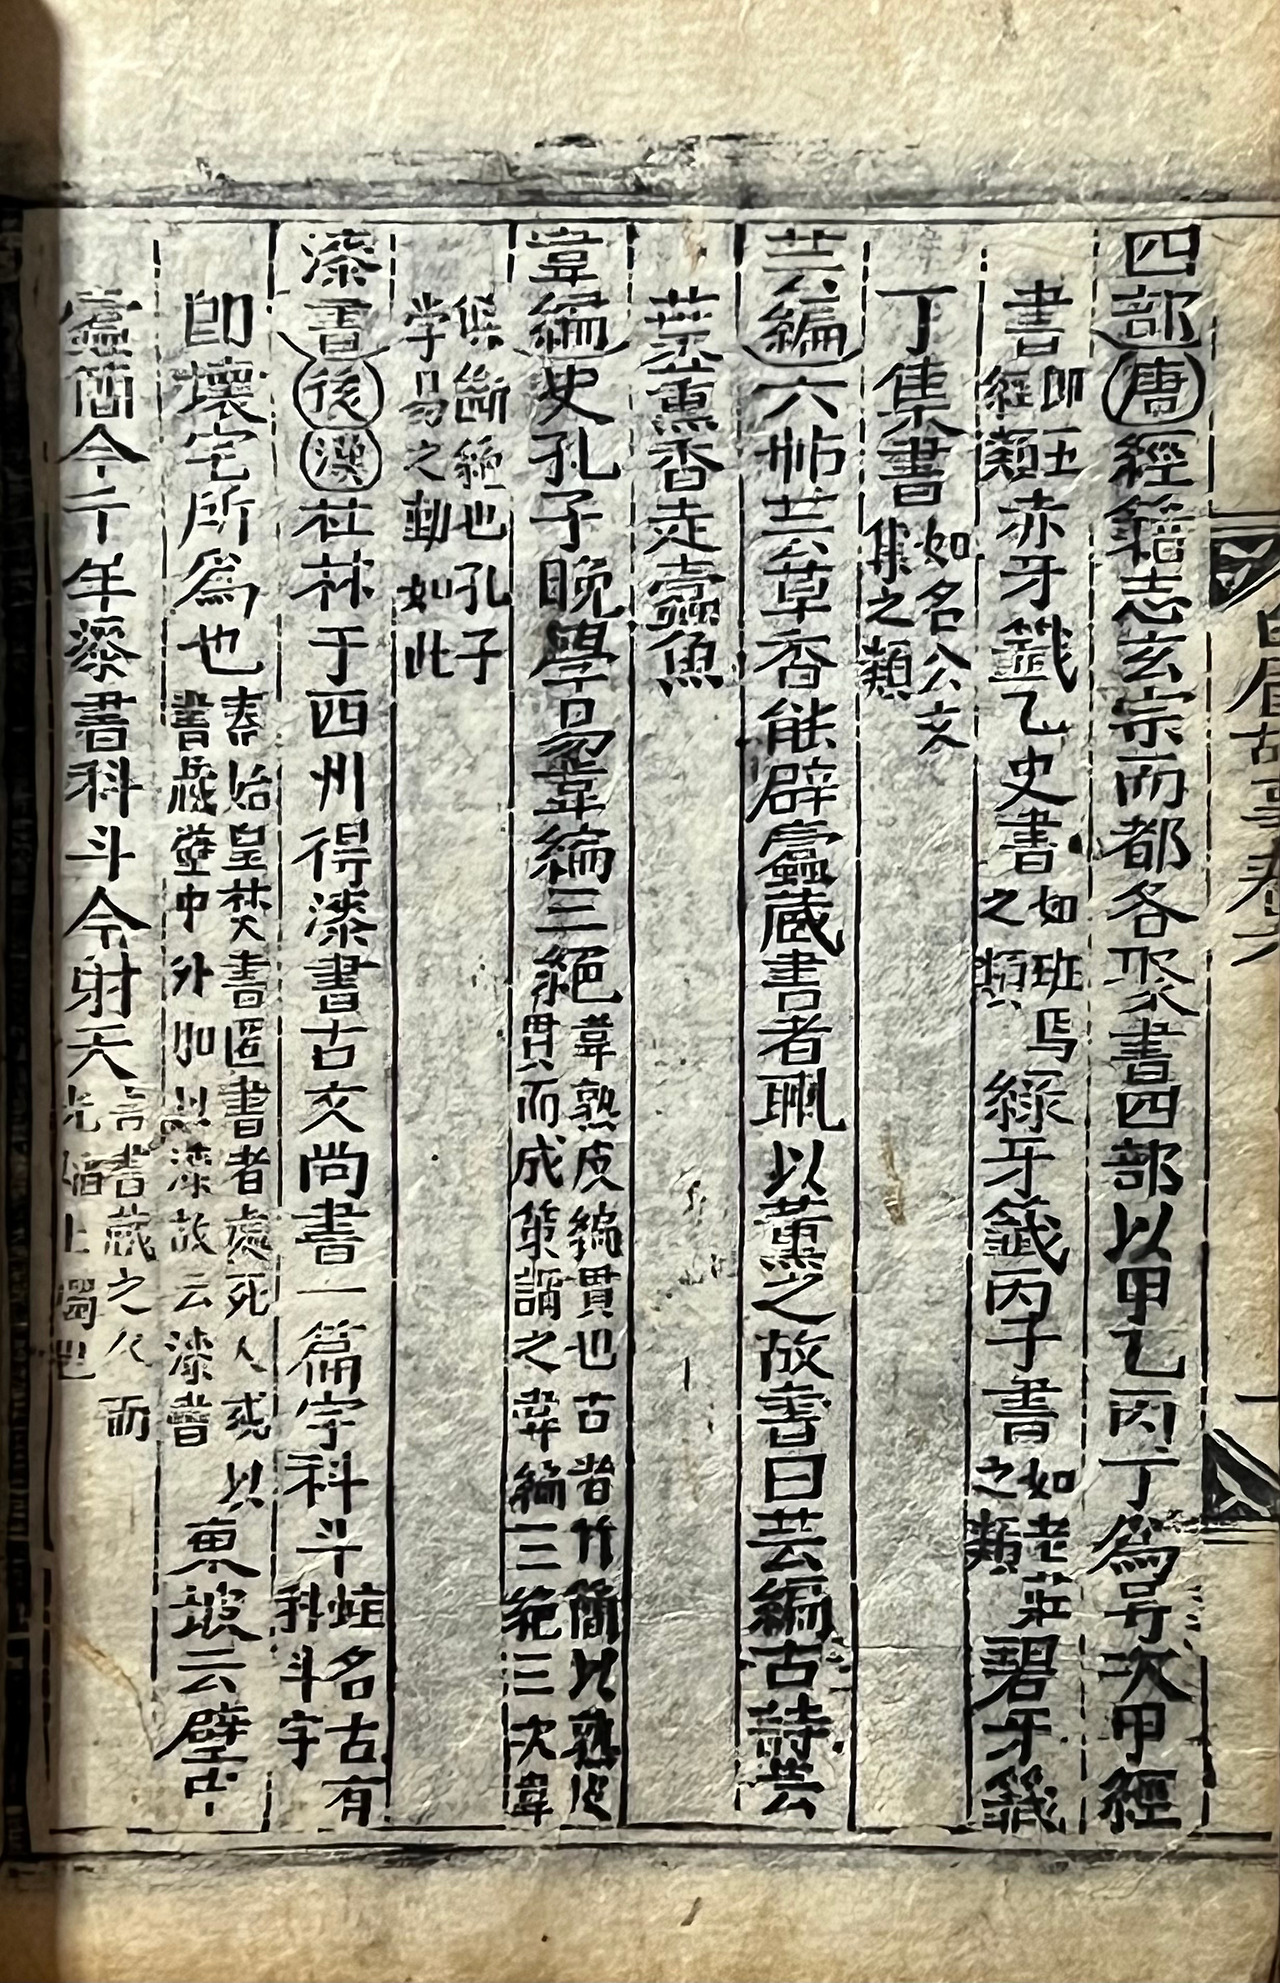 四部唐經籍志玄宗兩都各聚書四部以甲乙丙丁爲号次甲經
書即五經類赤牙籤乙史書如班馬之類綠牙籤丙子書如老莊之類碧牙籤
丁集書如名公文集之類
芸編六帖芸草香能辟蠹蔵書者珮以薰之故書曰芸編古詩芸
葉薰香走蠹魚
韋編史孔子晚學易韋編三絕韋熟皮編貫也古者竹簡以熟皮貫而成策謂之韋編三絕三次韋
俱斷絕也孔子学易之勤如此
漆書後漢杜林于西州得漆書古文尚書一篇字科斗蛙名古有科斗字
即壞宅所爲也秦始皇焚書匿書者處死人或以書藏壁中外加以漆故云漆書東坡云壁中
蠹簡今千年漆書科斗今射天言書蔵之久而光焰上燭也
白眉故事卷六
一